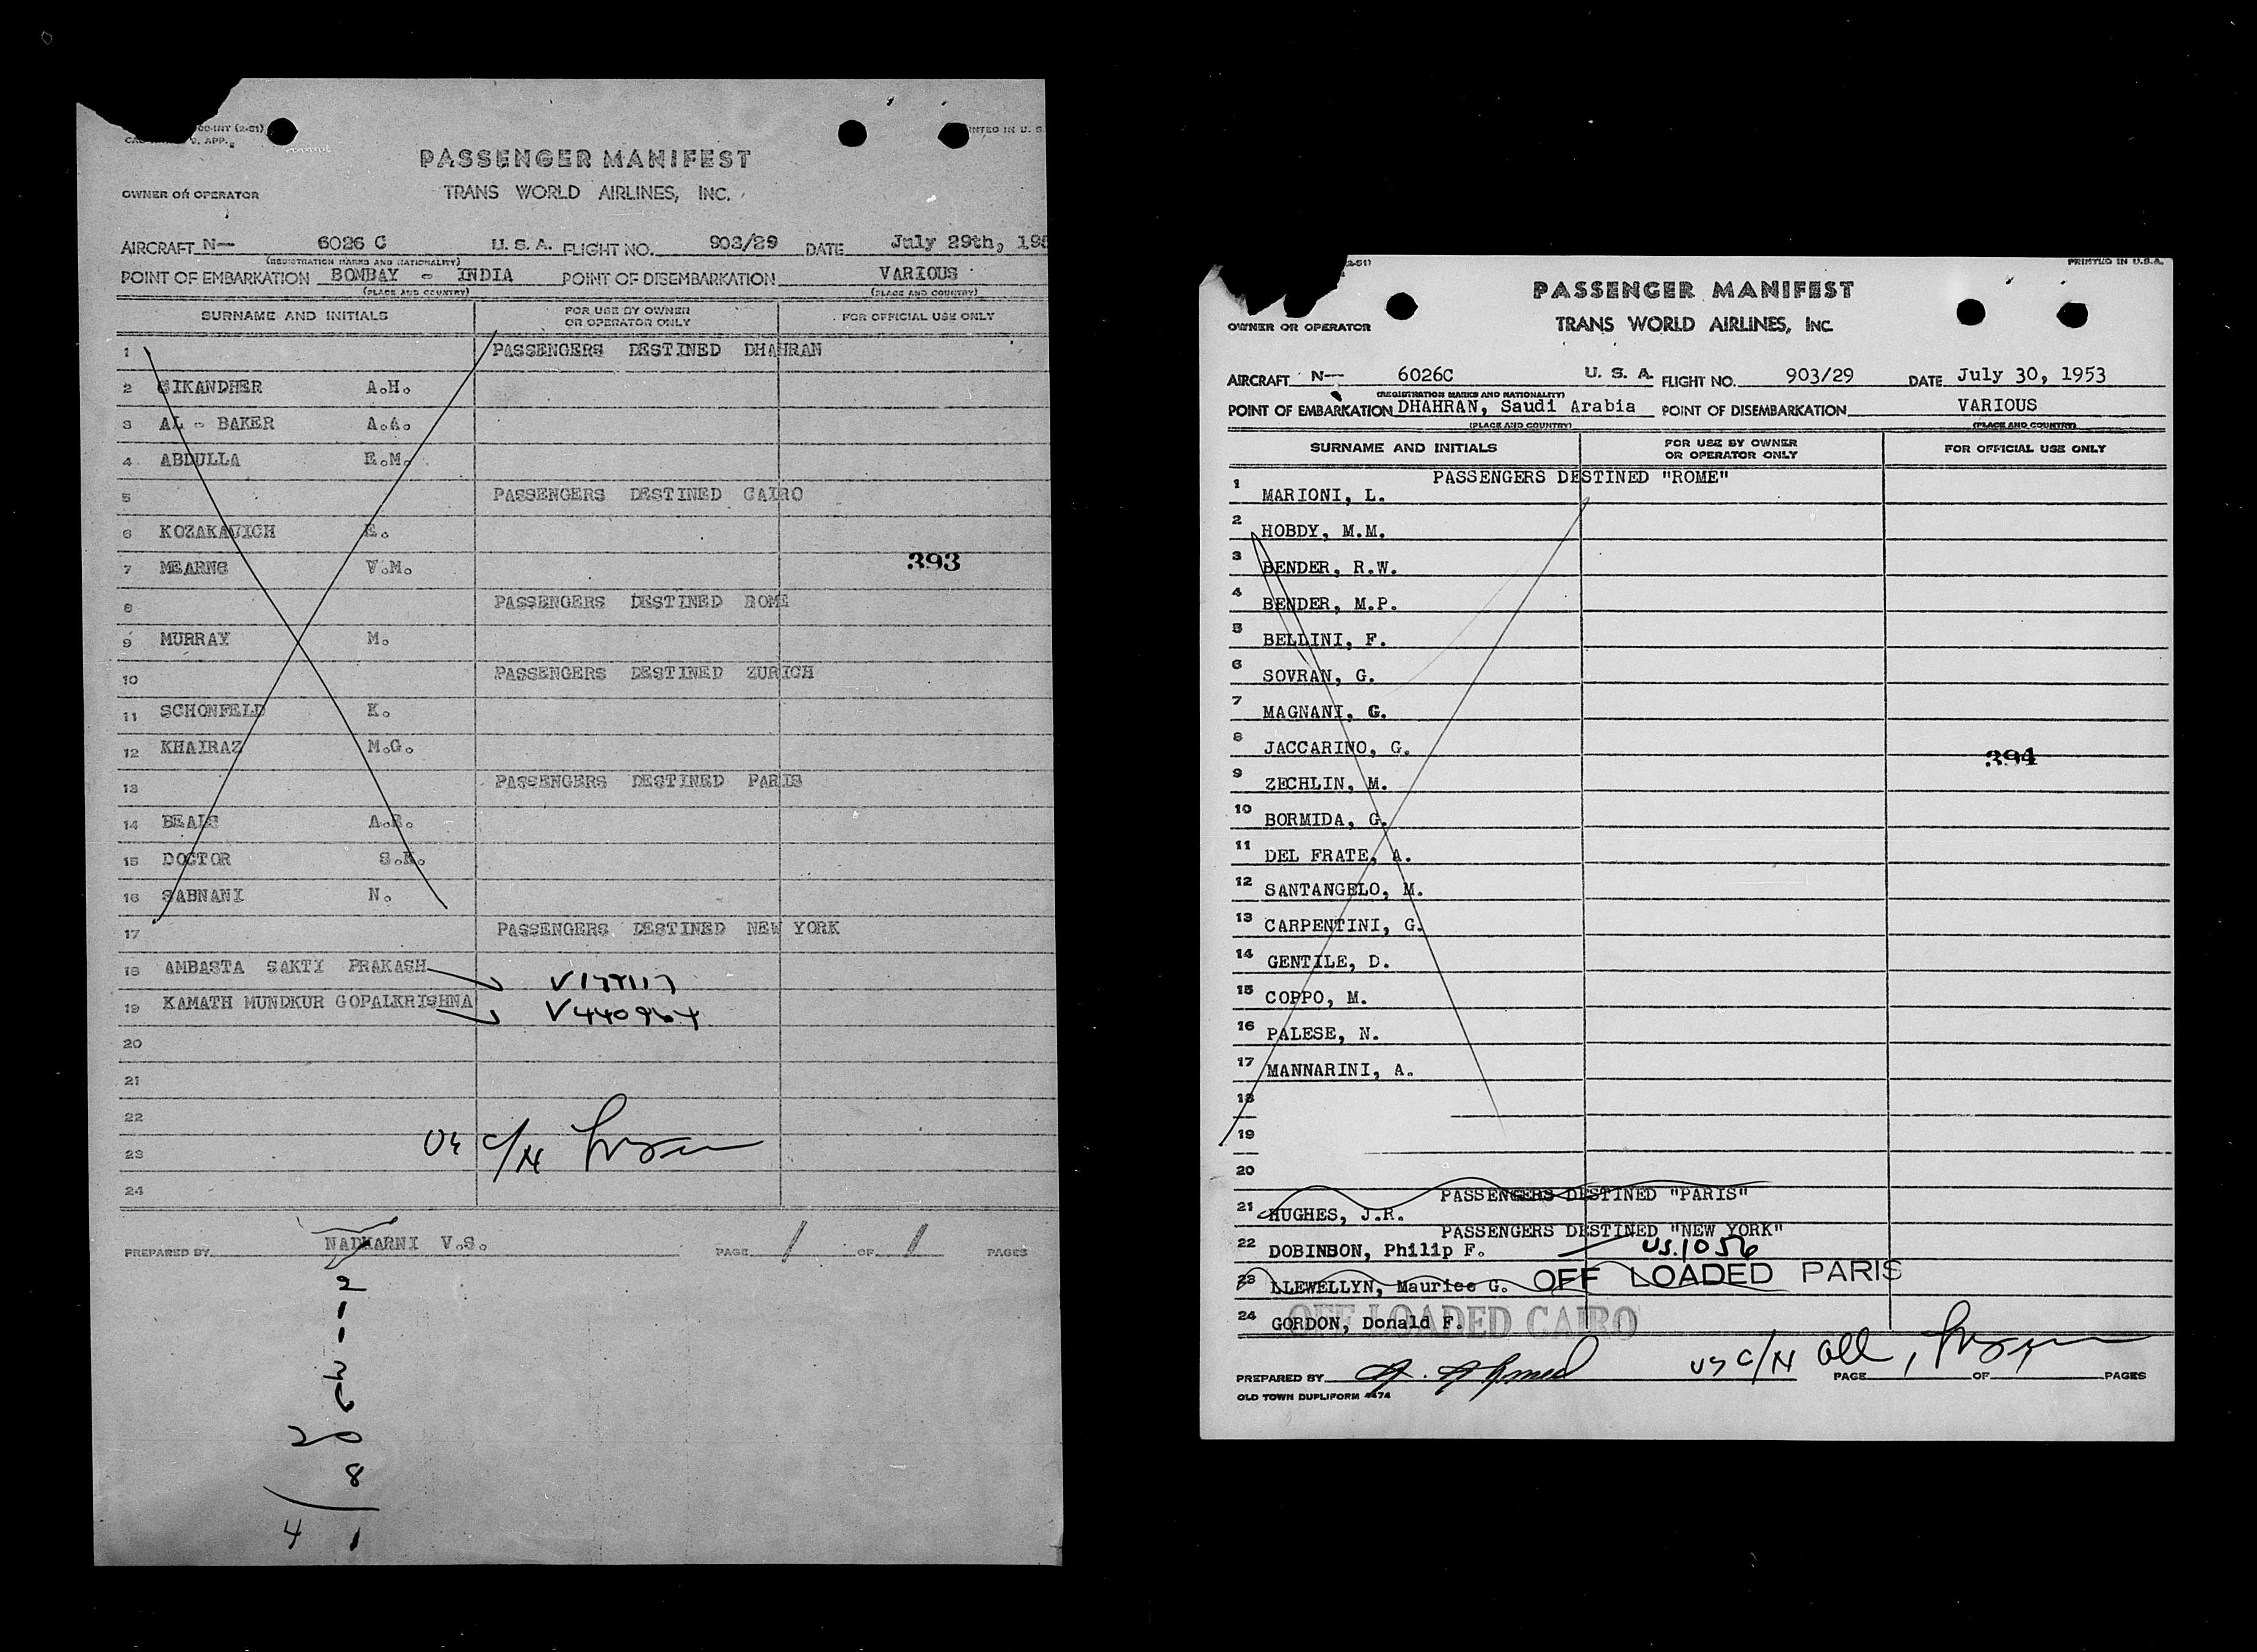 CO-INT (2-51)
V. APP.
PRINTED IN U. S.
PASSENGER MANIFEST
OWNER OR OPERATOR TRANS WORLD AIRLINES, INC.
AIRCRAFT N— 6026 C U. S. A. FLIGHT NO. 903/29 DATE July 29th, 195
(REGISTRATION MARKS AND NATIONALITY)
POINT OF EMBARKATION BOMBAY - INDIA POINT OF DISEMBARKATION VARIOUS
(PLACE AND COUNTRY) (PLACE AND COUNTRY)
SURNAME AND INITIALS FOR USE BY OWNER OR OPERATOR ONLY FOR OFFICIAL USE ONLY
1 PASSENGERS DESTINED DHAHRAN
2 SIKANDHER A.H.
3 AL - BAKER A.A.
4 ABDULLA E.M.
5 PASSENGERS DESTINED CAIRO
6 KOZAKAVICH E.
7 MEARNS V.M. 393
8 PASSENGERS DESTINED ROME
9 MURRAY M.
10 PASSENGERS DESTINED ZURICH
11 SCHONFELD K.
12 KHAIRAZ M.G.
13 PASSENGERS DESTINED PARIS
14 BEALS A.R.
15 DOCTOR S.K.
16 SABNANI N.
17 PASSENGERS DESTINED NEW YORK
18 AMBASTA SAKTI PRAKASH
19 KAMATH MUNDKUR GOPALKRISHNA
20
21
22
23 C/N
24
PREPARED BY NADKARNI V.S. PAGE 1 OF 1 PAGES
PRINTED IN U.S.A.
PASSENGER MANIFEST
OWNER OR OPERATOR TRANS WORLD AIRLINES, INC.
AIRCRAFT N— 6026C U. S. A. FLIGHT NO. 903/29 DATE July 30, 1953
(REGISTRATION MARKS AND NATIONALITY)
POINT OF EMBARKATION DHAHRAN, Saudi Arabia POINT OF DISEMBARKATION VARIOUS
(PLACE AND COUNTRY) (PLACE AND COUNTRY)
SURNAME AND INITIALS FOR USE BY OWNER OR OPERATOR ONLY FOR OFFICIAL USE ONLY
PASSENGERS DESTINED "ROME"
1 MARIONI, L.
2 HOBDY, M.M.
3 BENDER, R.W.
4 BENDER, M.P.
5 BELLINI, F.
6 SOVRAN, G.
7 MAGNANI, G.
8 JACCARINO, G. 394
9 ZECHLIN, M.
10 BORMIDA, G.
11 DEL FRATE, A.
12 SANTANGELO, M.
13 CARPENTINI, G.
14 GENTILE, D.
15 COPPO, M.
16 PALESE, N.
17 MANNARINI, A.
18
19
20
PASSENGERS DESTINED "PARIS"
21 HUGHES, J.R.
PASSENGERS DESTINED "NEW YORK"
22 DOBINSON, Philip F. US.1056
23 LLEWELLYN, Maurice G. OFF LOADED PARIS
24 GORDON, Donald F. OFF LOADED CAIRO
PREPARED BY A. Ahmed US C/N all, PAGE OF PAGES
OLD TOWN DUPLIFORM 4474